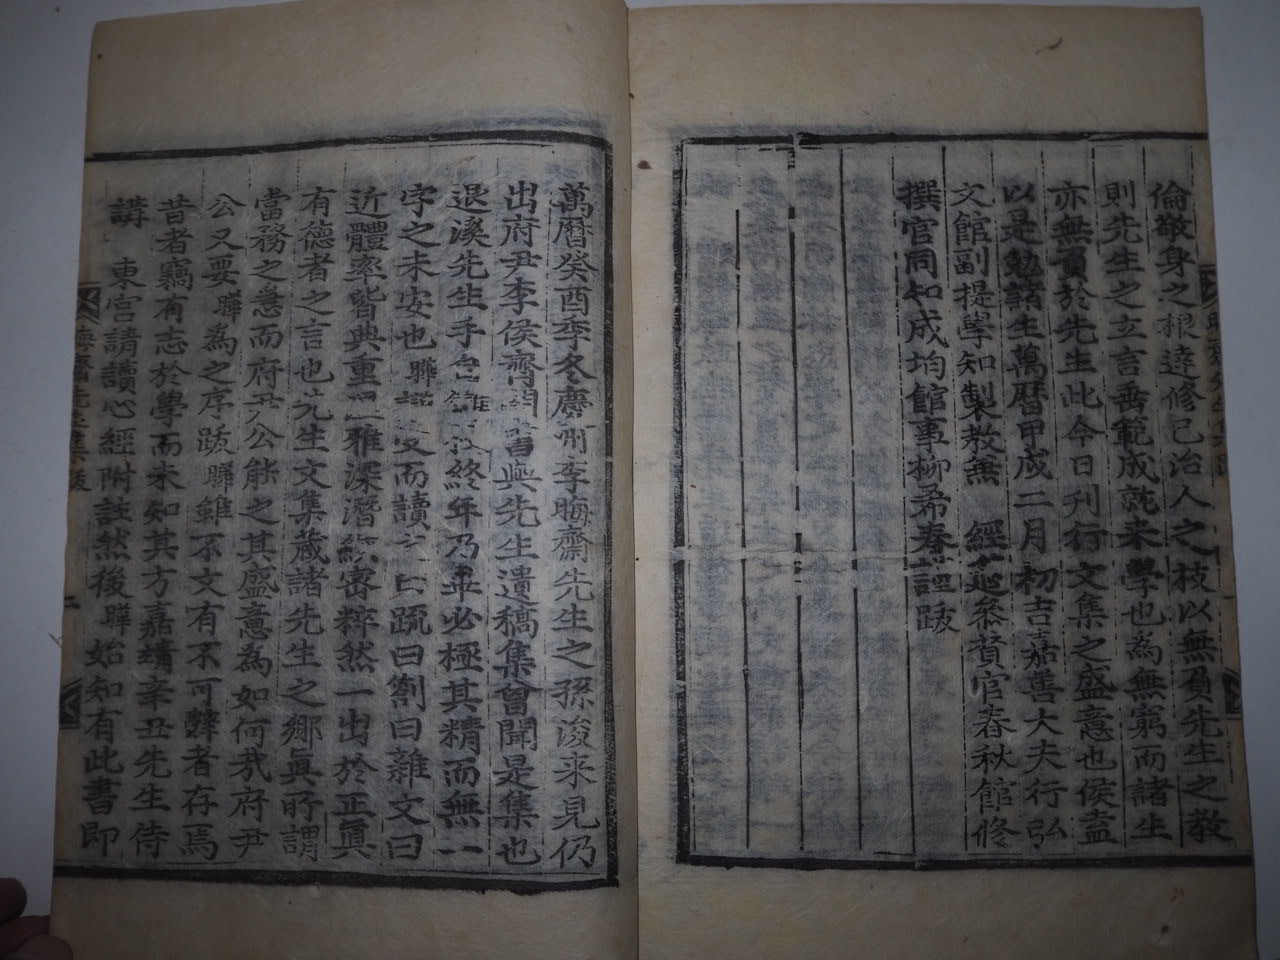 倫敬身之根達修己治人之枝以無負先生之教
則先生之立言垂範成就来學也為無窮而諸生
亦無負於先生此今日刊行文集之盛意也侯盍
以是勉諸生萬曆甲戌二月初吉嘉善大夫行弘
文館副提學知製教兼 經筵叅贊官春秋館修
撰官同知成均館事柳希春謹跋
萬曆癸酉季冬慶州李晦齋先生之孫浚来見仍
出府尹李侯齊閔書與先生遺稿集曾聞是集也
退溪先生手自讎校終年乃畢必極其精而無一
字之未安也曄謹受而讀之曰疏曰劄曰雜文曰
近體率皆典重 雅深潛縝密粹然一出於正眞
有德者之言也先生文集蔵諸先生之鄉眞所謂
當務之急而府尹公能之其盛意為如何㢤府尹
公又要曄為之序跋曄雖不文有不可辭者存焉
昔者竊有志於學而未知其方嘉靖辛丑先生侍
講 東宮請讀心經附註然後曄始知有此書即